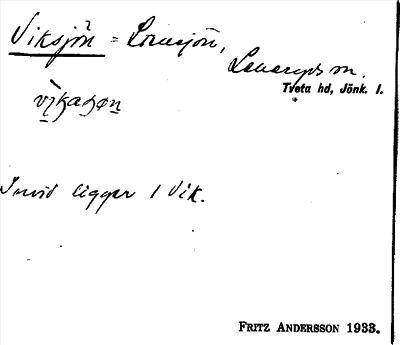 Viksjön = Lovsjön,
Lekeryds sn.
Tveta hd, Jönk. l.
Invid ligger 1 Vik.
FRITZ ANDERSSON 1933.